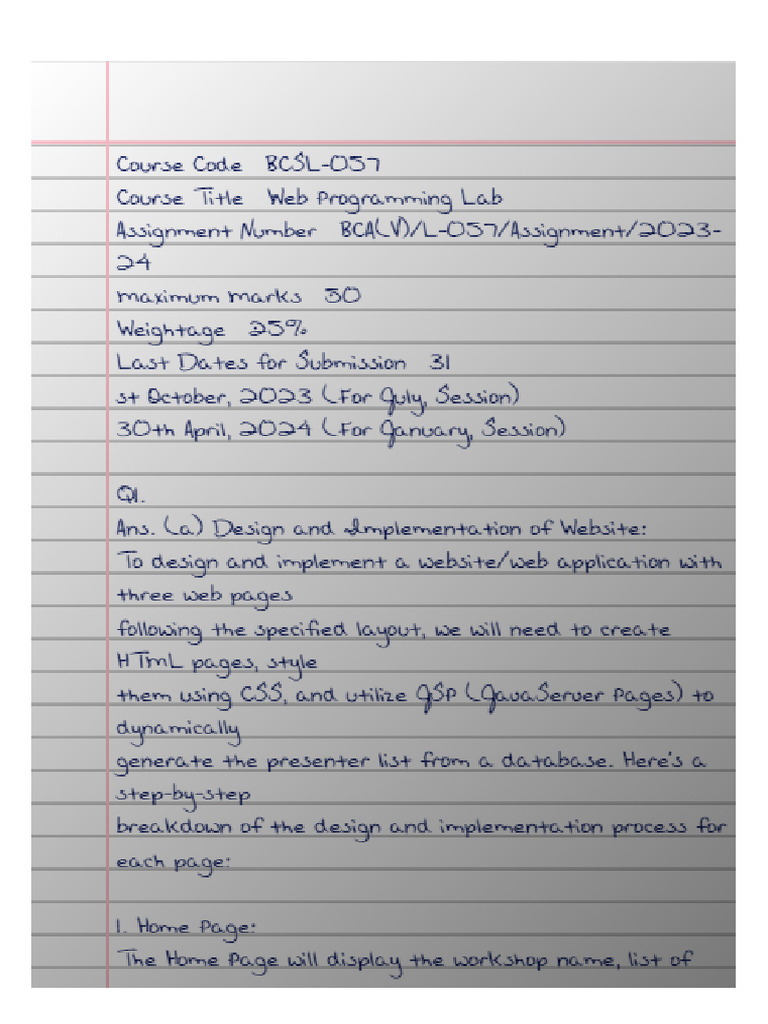 Course Code BCSL-057
Course Title Web Programming Lab
Assignment Number BCA(V)/L-057/Assignment/2023-
24
Maximum Marks 50
Weightage 25%
Last Dates for Submission 31
st October, 2023 (For July, Session)
30th April, 2024 (For January, Session)
Q1.
Ans. (a) Design and Implementation of Website:
To design and implement a website/web application with
three web pages
following the specified layout, we will need to create
HTML pages, style
them using CSS, and utilize JSP (JavaServer Pages) to
dynamically
generate the presenter list from a database. Here's a
step-by-step
breakdown of the design and implementation process for
each page:
1. Home Page:
The Home Page will display the workshop name, list of